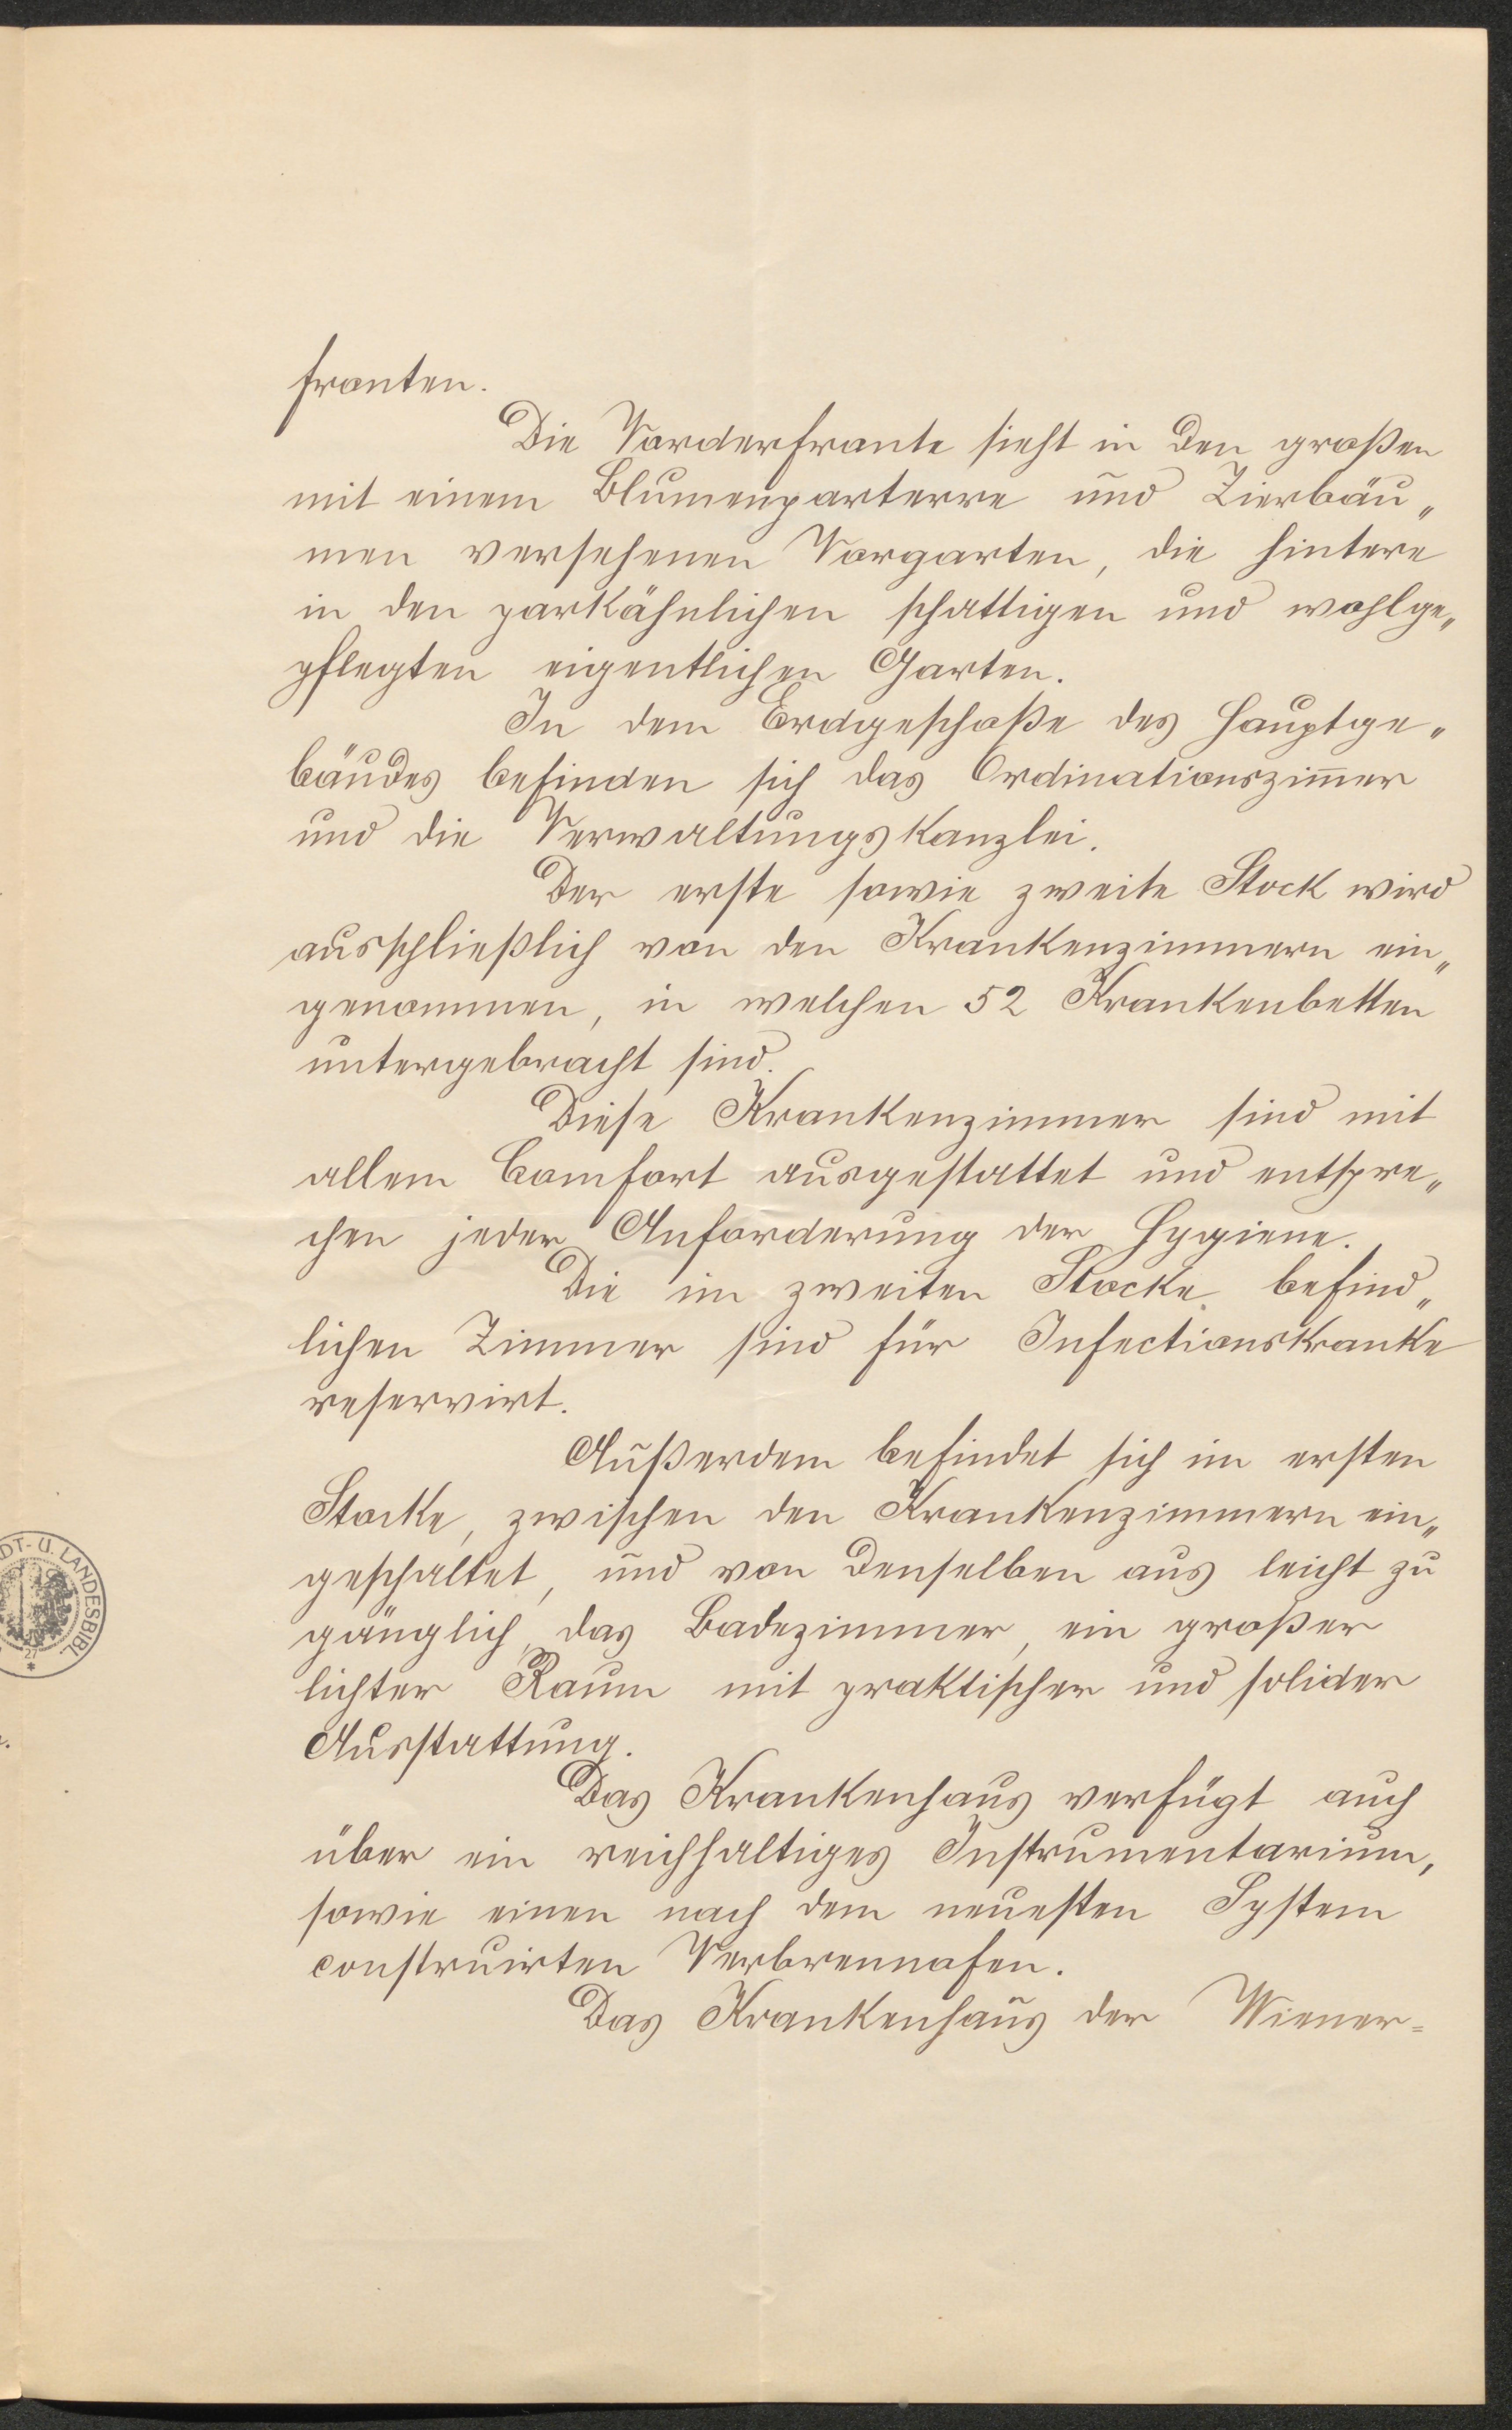 fronten.
Die Vorderfronte sieht in den großen
mit einem Blumenparterre und Zierbäu„
men versehenen Vorgarten, die hintere
in den parkähnlichen schattigen und wohlge„
pflegten eigentlichen Garten.
In dem Erdgeschoße des Hauptge„
bäudes befinden sich das Ordinationszim̅er
und die Verwaltungskanzlei.
Der erste sowie zweite Stock wird
ausschließlich von den Krankenzimmern ein„
genommen, in welchen 52 Krankenbetten
untergebracht sind.
Diese Krankenzimmer sind mit
allem Comfort ausgestattet und entspre„
chen jeder Anforderung der Hygiene.
Die im zweiten Stocke befind„
lichen Zimmer sind für Infectionskranke
reservirt.
Außerdem befindet sich im ersten
Stocke, zwischen den Krankenzimmern ein„
geschaltet, und von denselben aus leicht zu
gänglich, das Badezimmer, ein großer
lichter Raum mit praktischer und solider
Ausstattung.
Das Krankenhaus verfügt auch
über ein reichhaltiges Instrumentarium,
sowie einen nach dem neuesten System
construirten Verbrennofen.
Das Krankenhaus der Wiener=
DT- U. LANDESBIBL
27